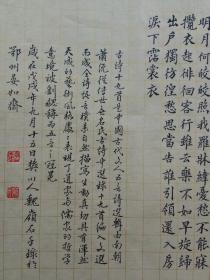 明月何皎皎照我羅牀緯憂愁不能寐
攬衣起徘徊客行雖云樂不如早旋歸
出戶獨彷徨愁思當告誰引領還入房
淚下霑裳衣
古詩十九首是中國古代文人五言詩選輯由南朝
蕭統從傳世無名氏古詩中選錄十九首編入文選
而成全詩語言樸素自然描寫生動真切具有渾然
天成的藝術風格處處表現了道家與儒家的哲學
意境被劉勰稱為五言之冠冕
歲在戊戌年九月十五日樊川人觀嶺石子錄於
鄂州晏如齋